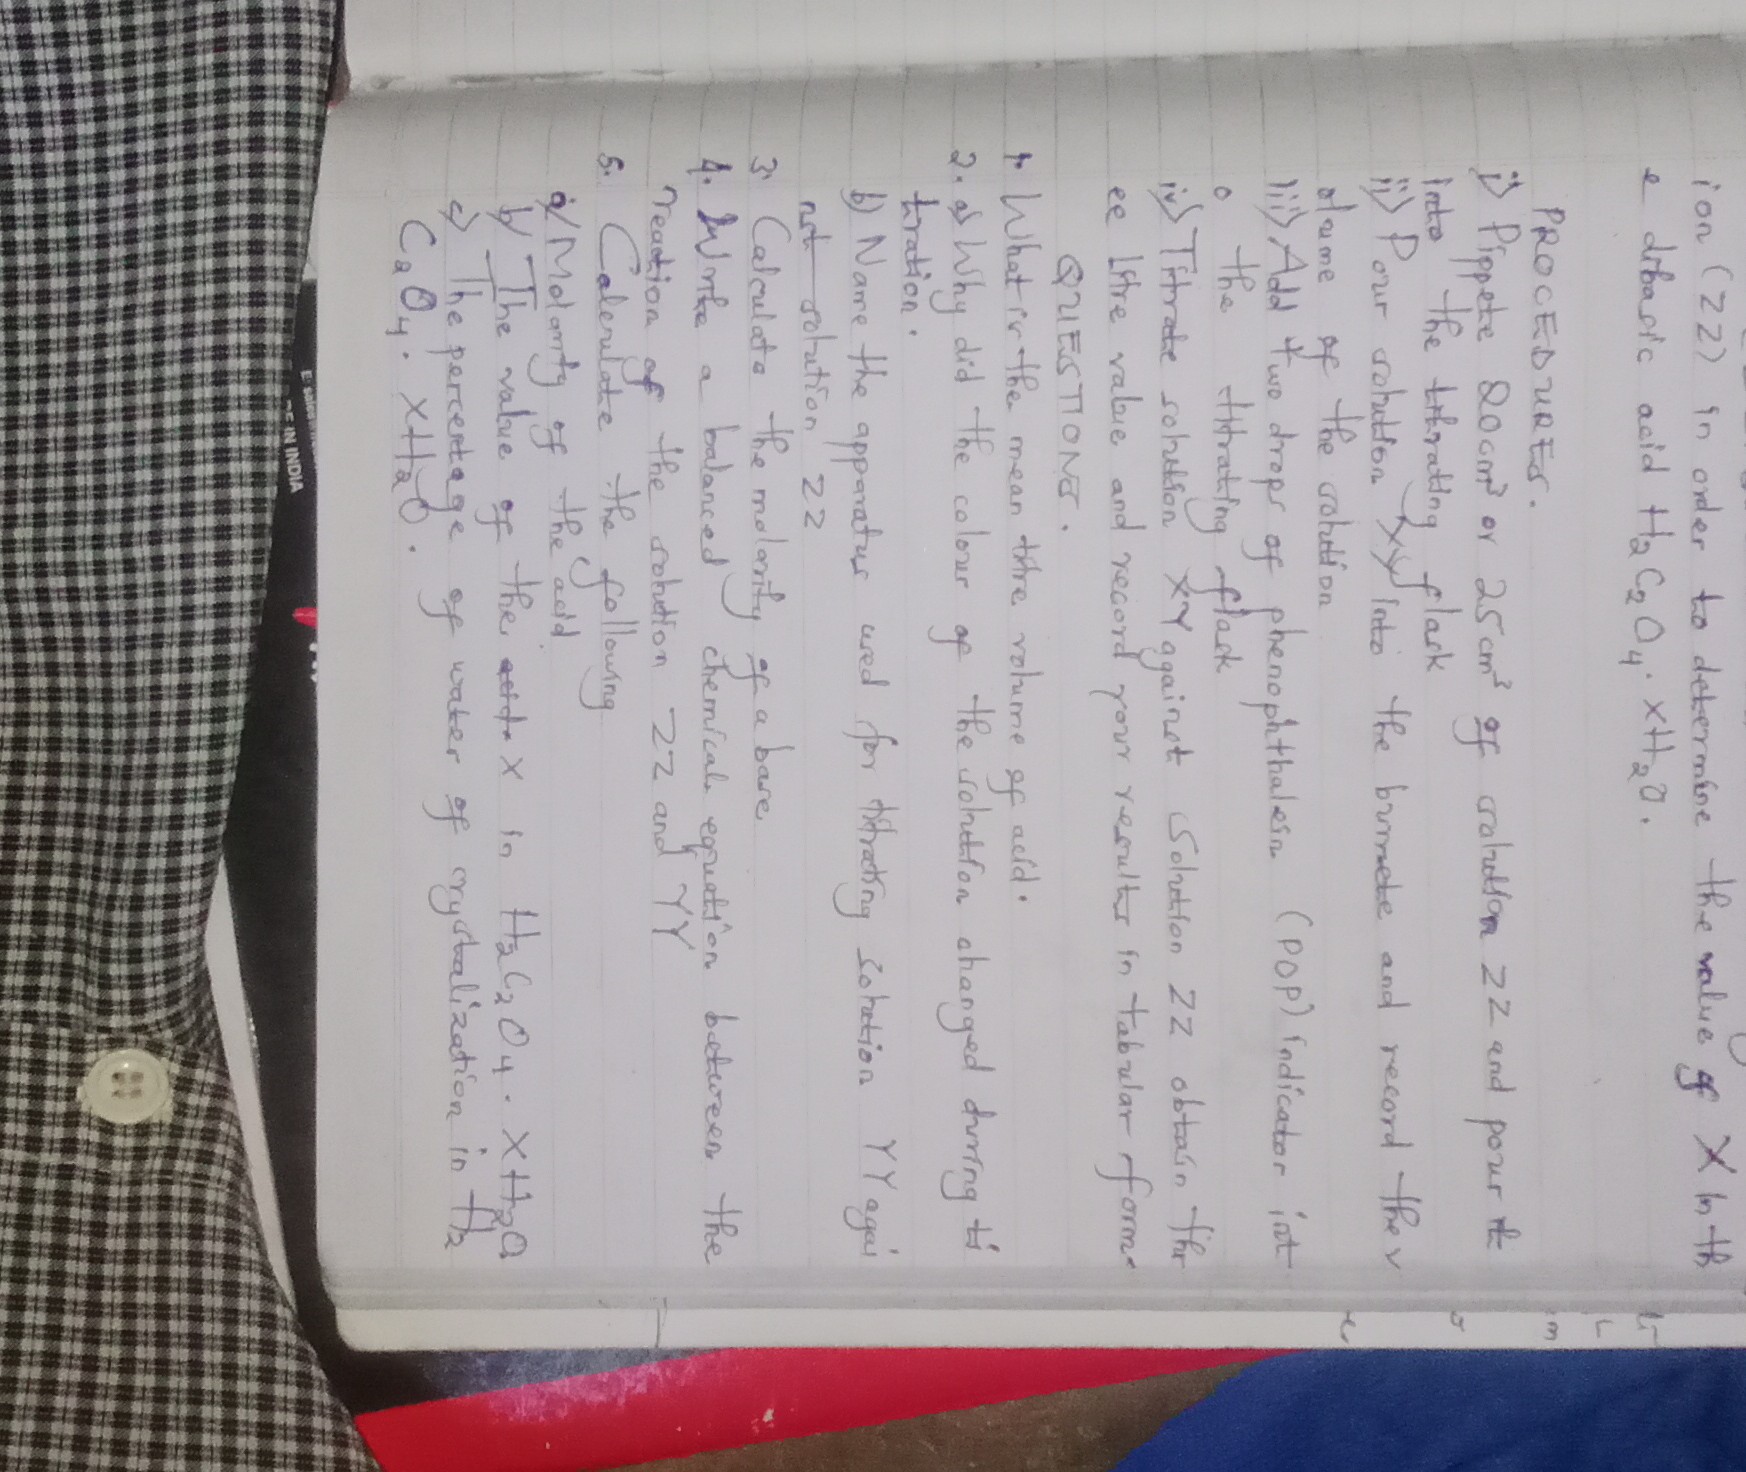 ion (ZZ) in order to determine the value of X in th
e dibasic acid H₂C₂O₄. XH₂O.
PROCEDURES.
i) Pippete 20cm³ or 25cm³ of solution ZZ and pour it
into the titrating flask
ii) Pour solution XY into the burrete and record the v
olume of the solution
iii) Add two drops of phenophthalein (POP) indicator int
o the titrating flask
iv) Titrate solution XY against solution ZZ obtain thr
ee litre value and record your results in tabular form.
QUESTIONS.
1. What is the mean titre volume of acid.
2. a) Why did the colour of the solution changed during ti
tration.
b) Name the apparatus used for titrating solution YY agai
nst solution ZZ
3. Calculate the molarity of a base
4. Write a balanced chemical equation between the
reaction of the solution ZZ and YY
5. Calculate the following
a) Molarity of the acid
b) The value of the X in H₂C₂O₄. XH₂O
c) The percentage of water of crystalization in H₂
C₂O₄. XH₂O.
E IN INDIA